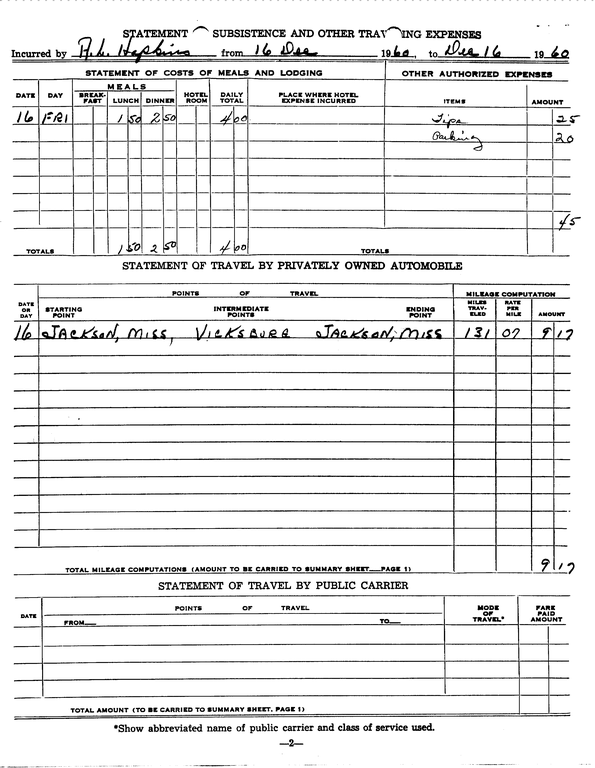 STATEMENT SUBSISTENCE AND OTHER TRAV ING EXPENSES
Incurred by A. L. Hopkins from 16 Dec 1960, to Dec 16 1960
STATEMENT OF COSTS OF MEALS AND LODGING OTHER AUTHORIZED EXPENSES
DATE DAY MEALS BREAK-FAST LUNCH DINNER HOTEL ROOM DAILY TOTAL PLACE WHERE HOTEL EXPENSE INCURRED ITEMS AMOUNT
16 FRI 1 50 2 50 4 00 Tips 25
Parking 20
45
TOTALS 1 50 2 50 4 00 TOTALS
STATEMENT OF TRAVEL BY PRIVATELY OWNED AUTOMOBILE
POINTS OF TRAVEL MILEAGE COMPUTATION
DATE OR DAY STARTING POINT INTERMEDIATE POINTS ENDING POINT MILES TRAV-ELED RATE PER MILE AMOUNT
16 JACKSON, MISS, VICKSBURG JACKSON, MISS 131 07 9 17
TOTAL MILEAGE COMPUTATIONS (AMOUNT TO BE CARRIED TO SUMMARY SHEET—PAGE 1) 9 17
STATEMENT OF TRAVEL BY PUBLIC CARRIER
DATE POINTS OF TRAVEL MODE OF TRAVEL* FARE PAID AMOUNT
FROM— TO—
TOTAL AMOUNT (TO BE CARRIED TO SUMMARY SHEET, PAGE 1)
*Show abbreviated name of public carrier and class of service used.
—2—